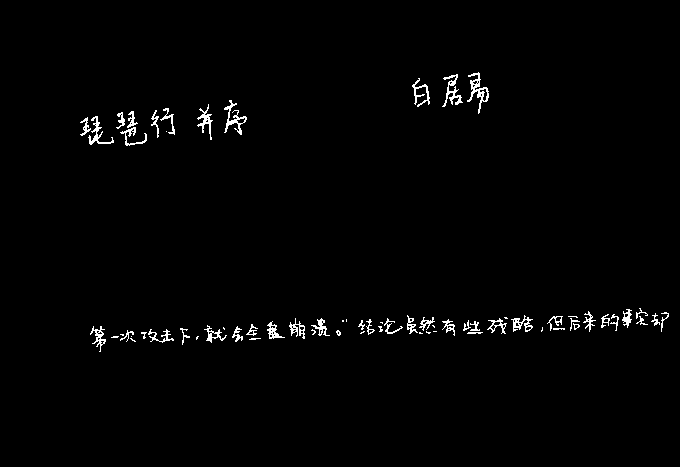 琵琶行 并序
白居易
第一次攻击下,就会全盘崩溃。"结论虽然有些残酷,但后来的事实却